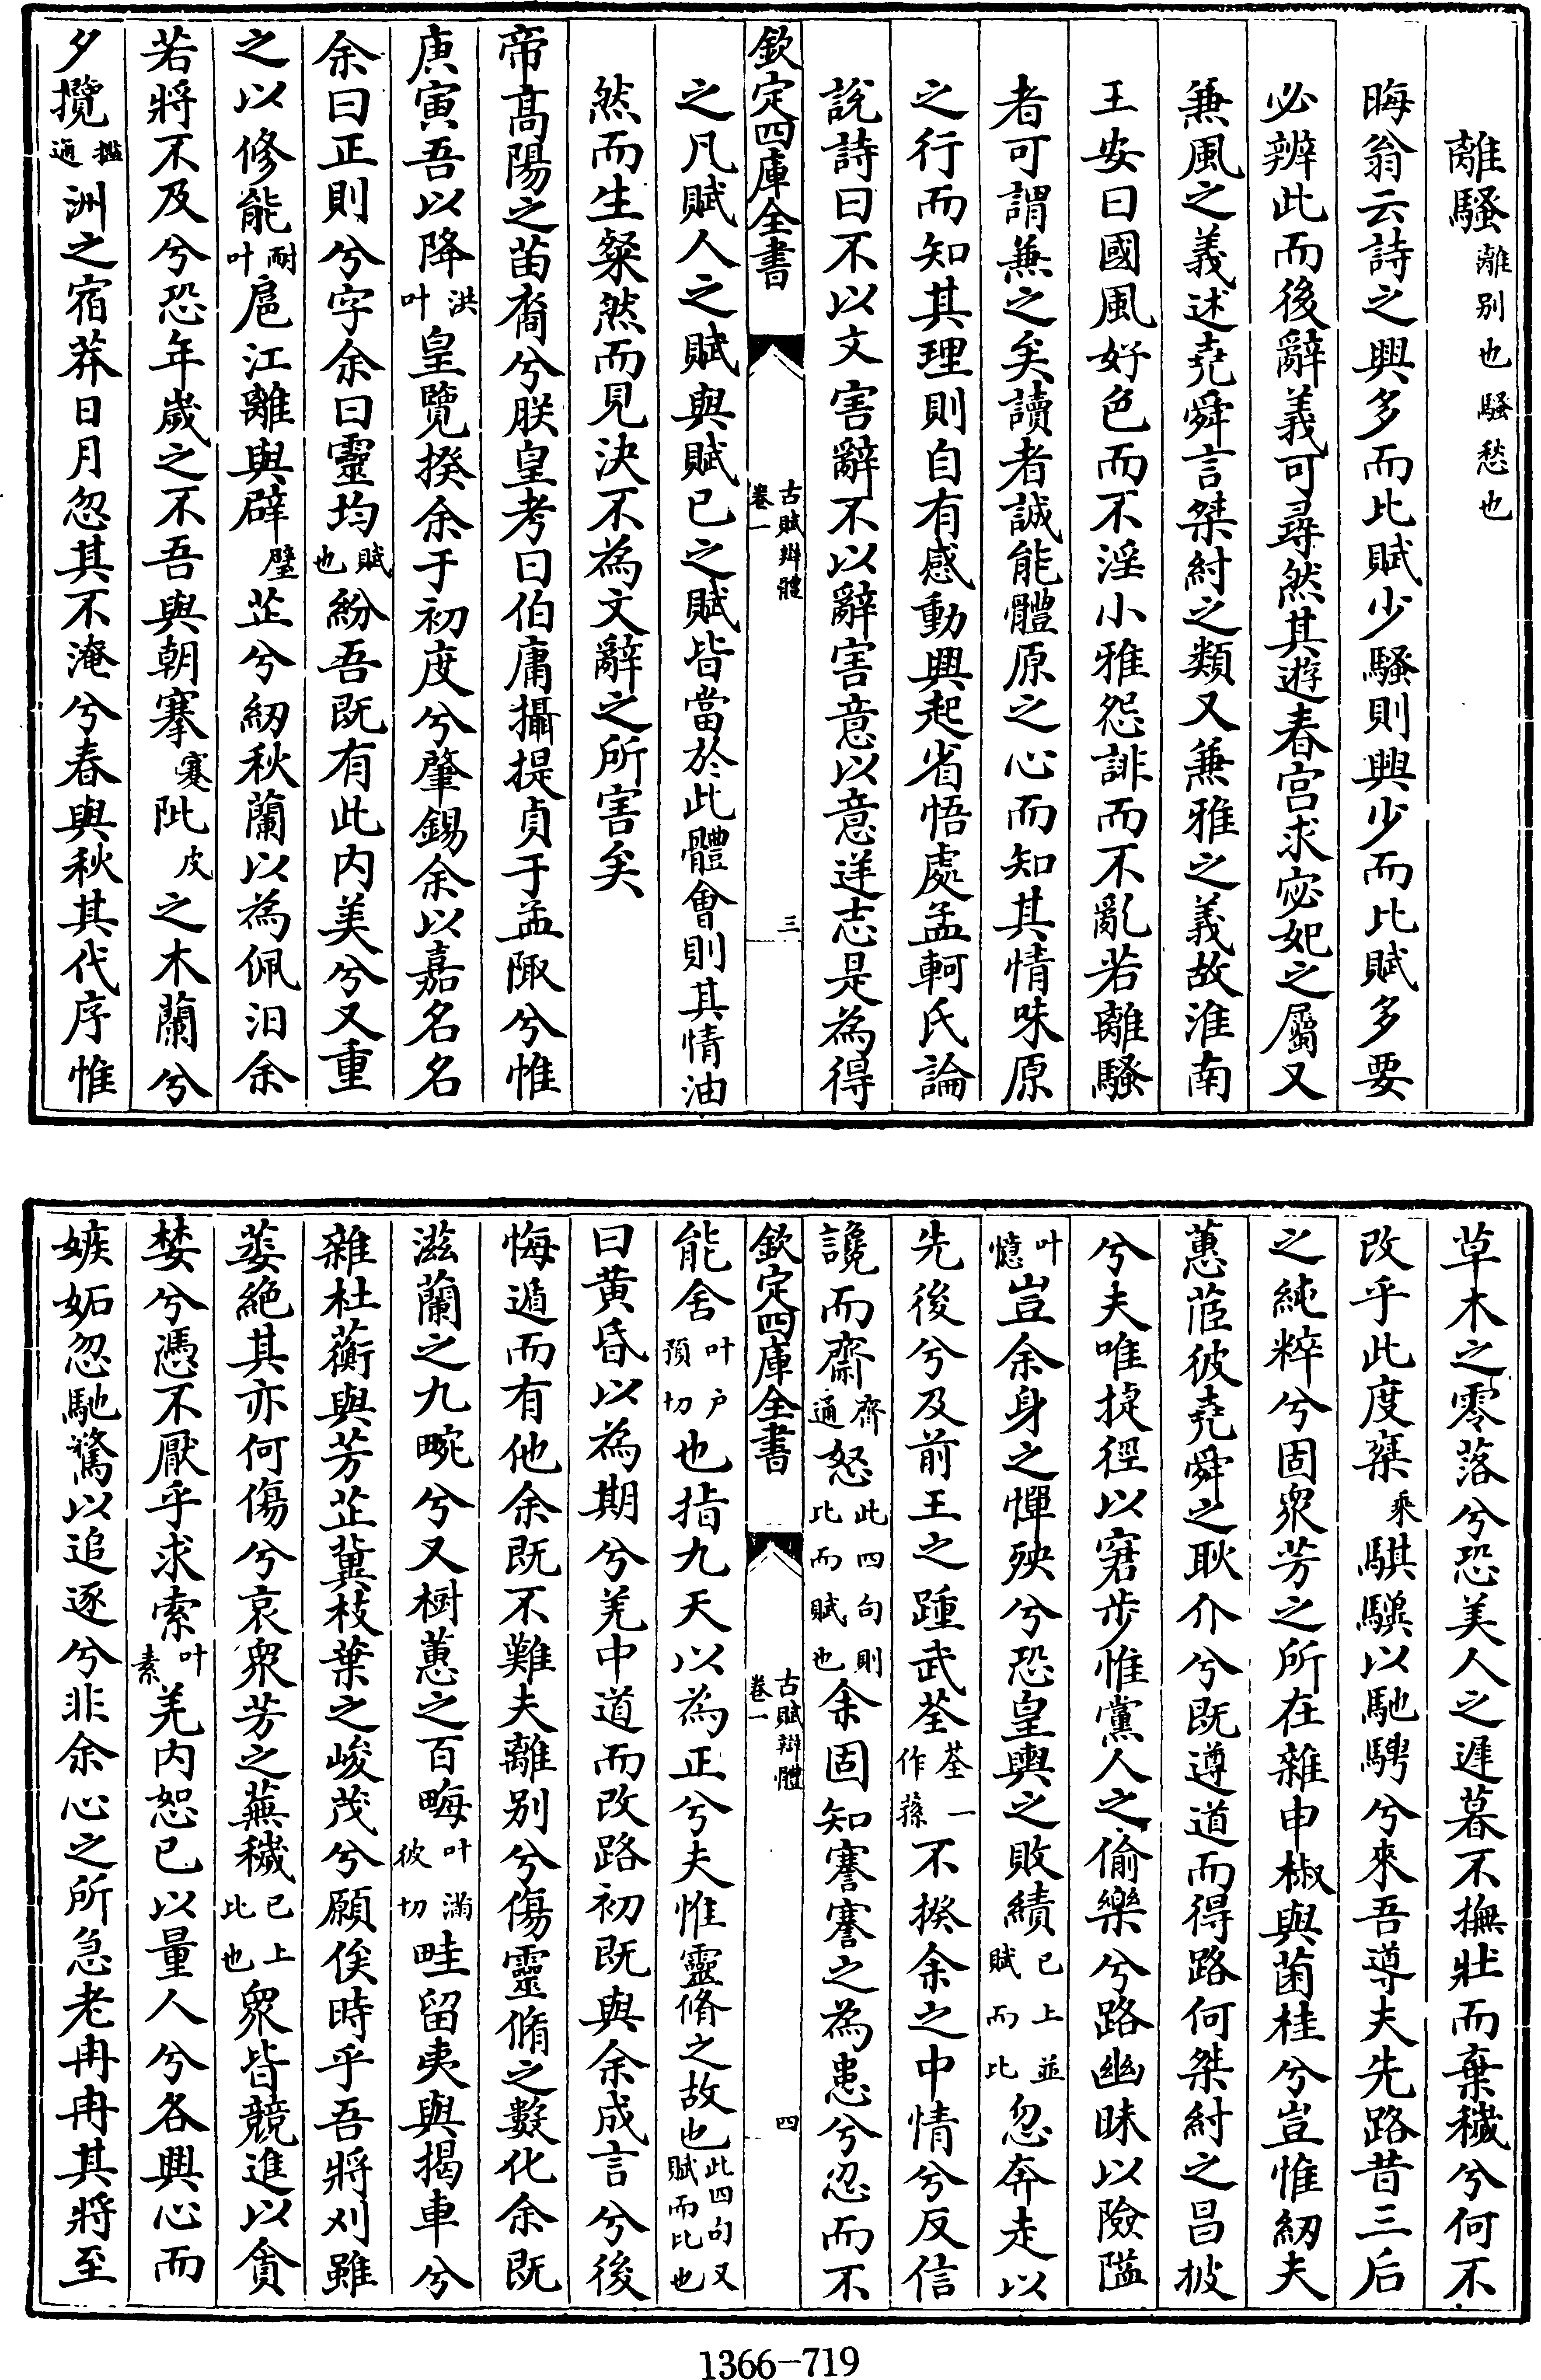 離騷離别也騷愁也
晦翁云詩之興多而比賦少騷則興少而比賦多要
必辨此而後辭義可尋然其遊春宫求宓妃之屬又
兼風之義述堯舜言桀紂之類又兼雅之義故淮南
王安曰國風好色而不淫小雅怨誹而不亂若離騷
者可謂兼之矣讀者誠能體原之心而知其情味原
之行而知其理則自有感動興起省悟處孟軻氏論
說詩曰不以文害辭不以辭害意以意逆志是為得
欽定四庫全書
古賦辯體
卷一
三
之凡賦人之賦與賦已之賦皆當於此體會則其情油
然而生粲然而見決不為文辭之所害矣
帝髙陽之苗裔兮朕皇考曰伯庸攝提貞于孟陬兮惟
庚寅吾以降洪叶皇覽揆余于初度兮肇錫余以嘉名名
余曰正則兮字余曰靈均賦也紛吾既有此内美兮又重
之以修能耐叶扈江離與辟璧芷兮紉秋蘭以為佩汨余
若將不及兮恐年歲之不吾與朝搴蹇阰皮之木蘭兮
夕攬擥通洲之宿莽日月忽其不淹兮春與秋其代序惟
草木之零落兮恐美人之遲暮不撫壯而棄穢兮何不
改乎此度椉乘騏驥以馳騁兮來吾導夫先路昔三后
之純粹兮固衆芳之所在雜申椒與菌桂兮豈惟紉夫
蕙茝彼堯舜之耿介兮既遵道而得路何桀紂之昌披
兮夫唯捷徑以窘步惟黨人之偷樂兮路幽昧以險隘
叶憶豈余身之憚殃兮恐皇輿之敗績已上並賦而比忽奔走以
先後兮及前王之踵武荃荃一作蓀不揆余之中情兮反信
讒而齌齊通怒此四句則比而賦也余固知謇謇之為患兮忍而不
欽定四庫全書
古賦辯體
卷一
四
能舍叶户預切也指九天以為正兮夫惟靈脩之故也此四句又賦而比也
曰黄昏以為期兮羌中道而改路初既與余成言兮後
悔遁而有他余既不難夫離别兮傷靈脩之數化余既
滋蘭之九畹兮又樹蕙之百畮叶滿彼切畦留夷與揭車兮
雜杜蘅與芳芷冀枝葉之峻茂兮願俟時乎吾將刈雖
萎絶其亦何傷兮哀衆芳之蕪穢已上比也衆皆競進以貪
婪兮憑不厭乎求索叶素羌内恕已以量人兮各興心而
嫉妬忽馳騖以追逐兮非余心之所急老冉冉其將至
1366-719